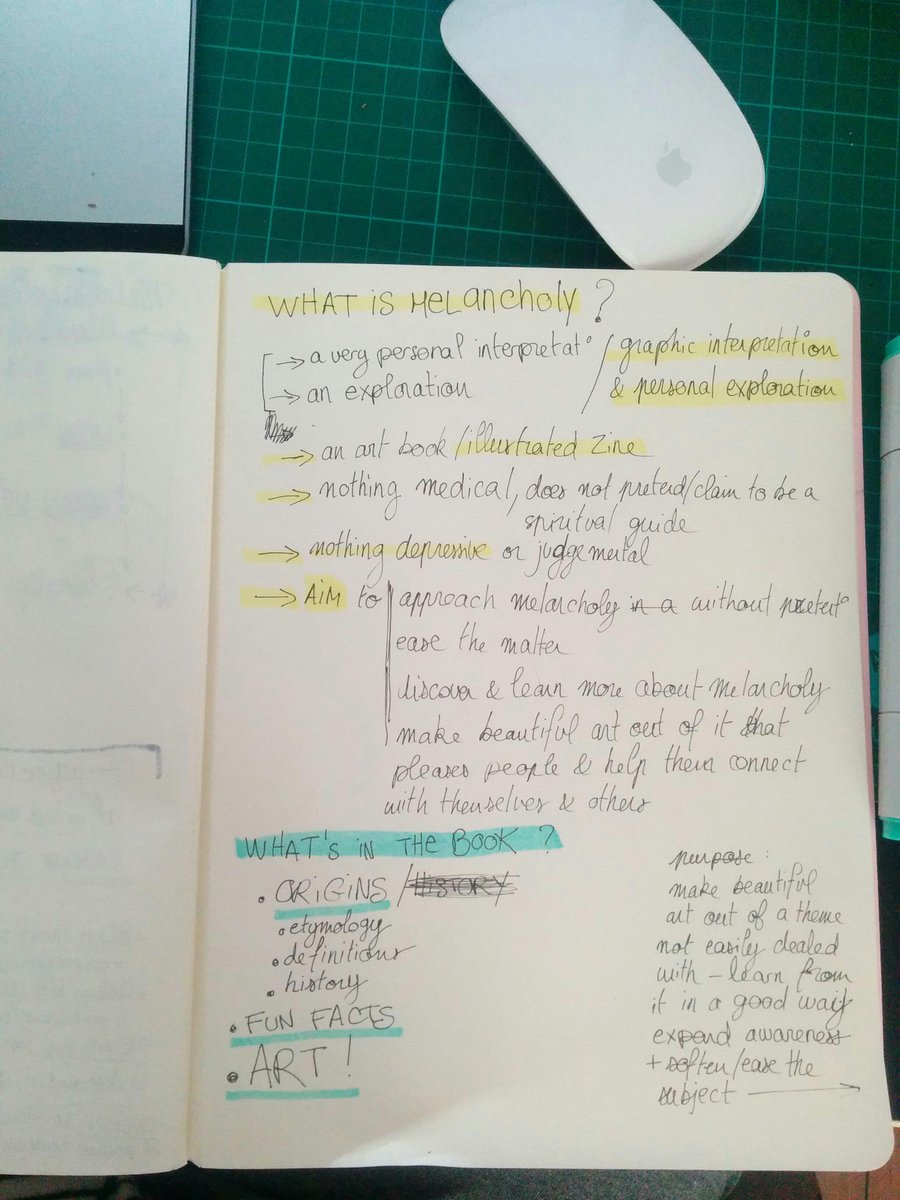 WHAT iS MELancHoLy ?
→ a very personal interpretat°
→ an exploration
/ graphic interpretation
& personal exploration
→ an art book / illustrated Zine
→ nothing medical, does not pretend/claim to be a
spiritual guide
→ nothing depressive or judgemental
→ AiM to
approach melancholy in a without pretent°
ease the matter
discover & learn more about melancholy
make beautiful art out of it that
pleases people & help them connect
with themselves & others
WHAT'S iN THE BOOK ?
• ORiGiNS / HiSTORY
• etymology
• definitions
• history
• FUN FACTS
• ART !
purpose :
make beautiful
art out of a theme
not easily dealed
with – learn from
it in a good way
expend awareness
+ soften/ease the
subject →